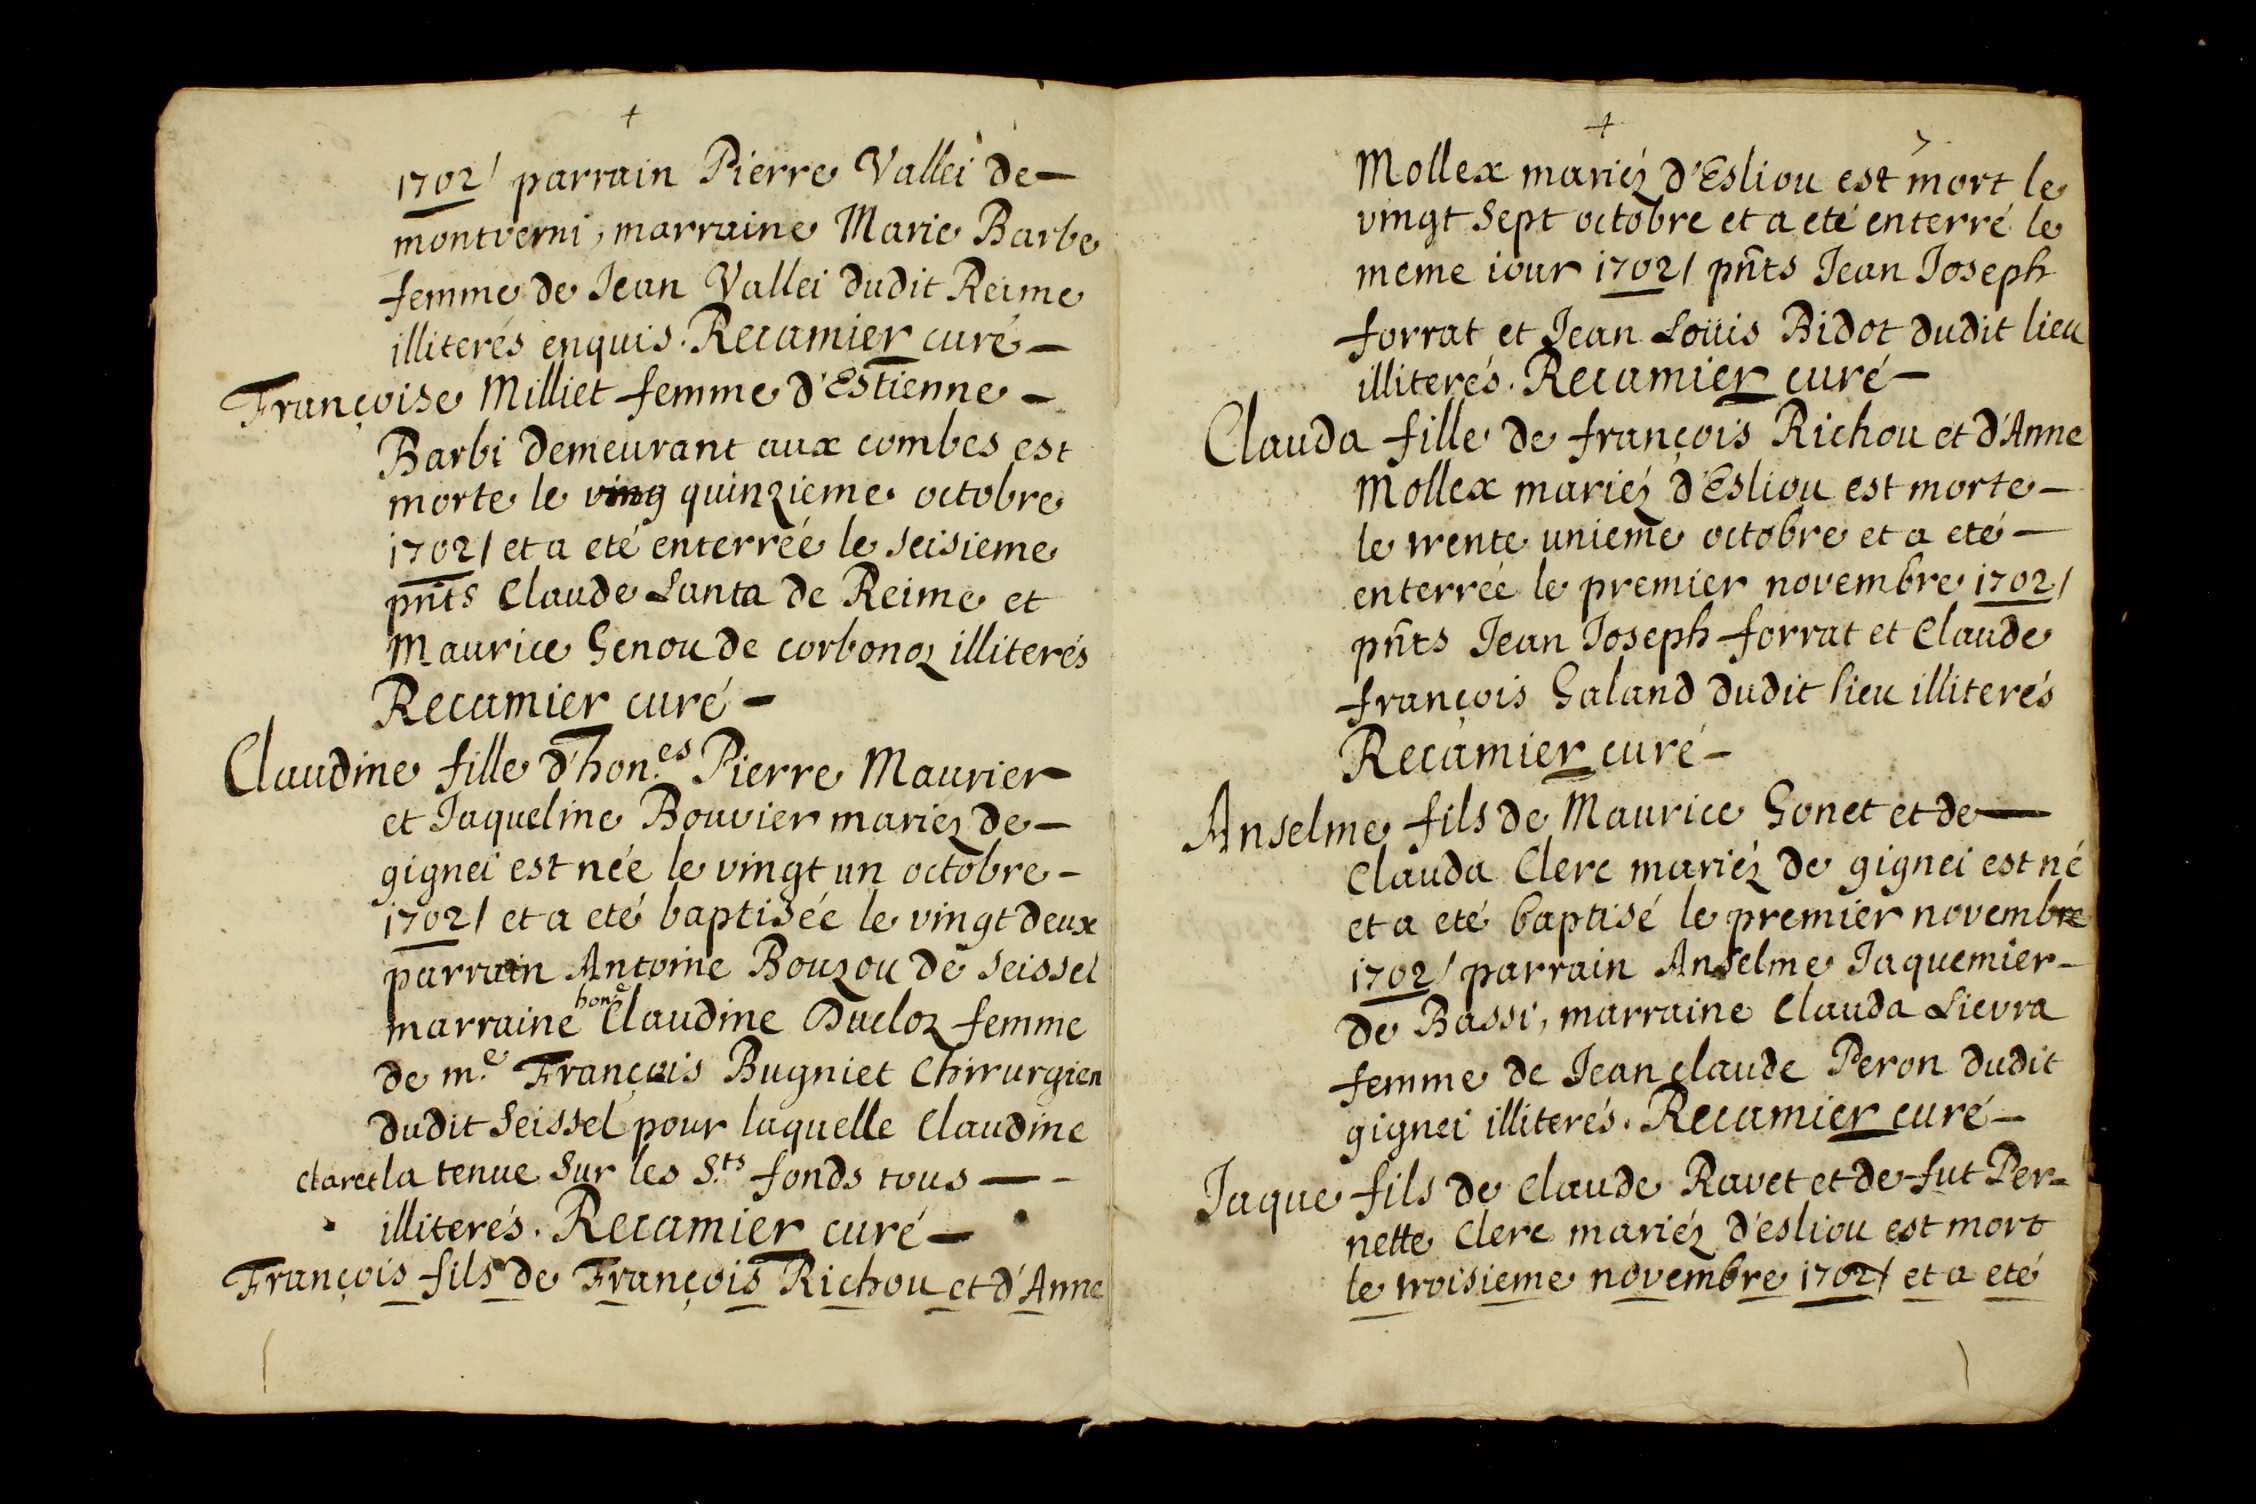 1702/ parrain Pierre Vallei de—
montverni, marraine Marie Barbe
femme de Jean Vallei dudit Reime
illiterés enquis. Recamier curé—
Françoise Milliet femme d'Estienne—
Barbi demeurant aux combes est
morte le ving quinzieme octobre
1702/ et a eté enterréé le seisieme
pñts Claude Lanta de Reime et
Maurice Genou de corbonoz illiterés
Recamier curé—
Claudine fille d'hon.es Pierre Maurier
et Jaqueline Bouvier mariez de—
gignei est née le vingt un octobre—
1702/ et a eté baptisée le vingt deux
parrain Antoine Bouzou de seissel
marraine hon.e Claudine Ducloz femme
de m.e François Bugniet Chirurgien
dudit Seissel pour laquelle Claudine
claret la tenue sur les S.ts fonds tous — -
illiterés. Recamier curé—
François fils de François Richou et d'Anne
Mollex mariéz d'Esliou est mort le
vingt sept octobre et a eté enterré le
meme iour 1702/ pñts Jean Joseph
forrat et Jean Loüis Bidot dudit lieu
illiterés. Recamier curé—
Clauda fille de françois Richou et d'Anne
Mollex mariéz d'Esliou est morte—
le trente unieme octobre et a eté—
enterrée le premier novembre 1702/
pñts Jean Joseph forrat et Claude
françois Galand dudit lieu illiterés
Recamier curé—
Anselme fils de Maurice Gonet et de—
Clauda Clerc mariéz de gignei est né
et a eté baptisé le premier novembre
1702/ parrain Anselme Jaquemier—
de Bassi, marraine Clauda Lievra
femme de Jean claude Peron dudit
gignei illiterés. Recamier curé—
Jaque fils de Claude Ravet et de fut Per=
nette Clerc mariéz d'esliou est mort
le troisieme novembre 1702/ et a eté